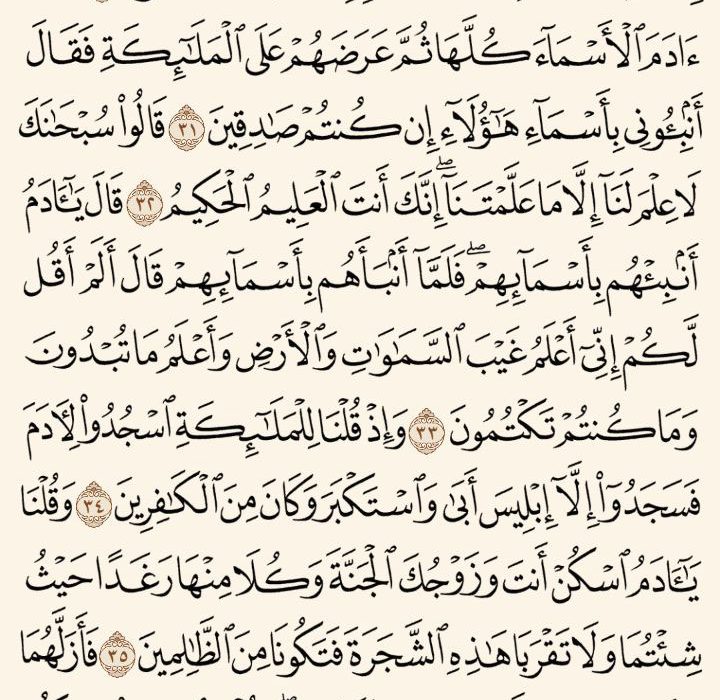 ءَادَمَ ٱلْأَسْمَآءَ كُلَّهَا ثُمَّ عَرَضَهُمْ عَلَى ٱلْمَلَـٰٓئِكَةِ فَقَالَ
أَنۢبِـُٔونِى بِأَسْمَآءِ هَـٰٓؤُلَآءِ إِن كُنتُمْ صَـٰدِقِينَ ٣١ قَالُوا۟ سُبْحَـٰنَكَ
لَا عِلْمَ لَنَآ إِلَّا مَا عَلَّمْتَنَآ ۖ إِنَّكَ أَنتَ ٱلْعَلِيمُ ٱلْحَكِيمُ ٣٢ قَالَ يَـٰٓـَٔادَمُ
أَنۢبِئْهُم بِأَسْمَآئِهِمْ ۖ فَلَمَّآ أَنۢبَأَهُم بِأَسْمَآئِهِمْ قَالَ أَلَمْ أَقُل
لَّكُمْ إِنِّىٓ أَعْلَمُ غَيْبَ ٱلسَّمَـٰوَٰتِ وَٱلْأَرْضِ وَأَعْلَمُ مَا تُبْدُونَ
وَمَا كُنتُمْ تَكْتُمُونَ ٣٣ وَإِذْ قُلْنَا لِلْمَلَـٰٓئِكَةِ ٱسْجُدُوا۟ لِـَٔادَمَ
فَسَجَدُوٓا۟ إِلَّآ إِبْلِيسَ أَبَىٰ وَٱسْتَكْبَرَ وَكَانَ مِنَ ٱلْكَـٰفِرِينَ ٣٤ وَقُلْنَا
يَـٰٓـَٔادَمُ ٱسْكُنْ أَنتَ وَزَوْجُكَ ٱلْجَنَّةَ وَكُلَا مِنْهَا رَغَدًا حَيْثُ
شِئْتُمَا وَلَا تَقْرَبَا هَـٰذِهِ ٱلشَّجَرَةَ فَتَكُونَا مِنَ ٱلظَّـٰلِمِينَ ٣٥ فَأَزَلَّهُمَا